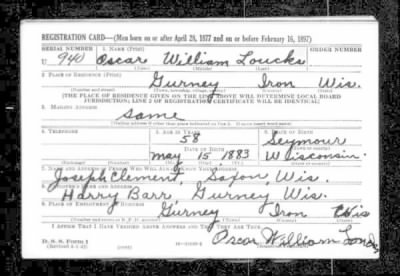 REGISTRATION CARD—(Men born on or after April 28, 1877 and on or before February 16, 1897)
SERIAL NUMBER 1. NAME (Print) ORDER NUMBER
U 940 Oscar William Loucks
(First) (Middle) (Last)
2. PLACE OF RESIDENCE (Print)
Gurney Iron Wis.
(Number and street) (Town, township, village, or city) (County) (State)
[THE PLACE OF RESIDENCE GIVEN ON THE LINE ABOVE WILL DETERMINE LOCAL BOARD
JURISDICTION; LINE 2 OF REGISTRATION CERTIFICATE WILL BE IDENTICAL]
3. MAILING ADDRESS
Same
[Mailing address if other than place indicated on line 2. If same insert word same]
4. TELEPHONE 5. AGE IN YEARS 6. PLACE OF BIRTH
58 Seymour
DATE OF BIRTH (Town or county)
May 15, 1883 Wisconsin.
(Exchange) (Number) (Mo.) (Day) (Yr.) (State or country)
7. NAME AND ADDRESS OF PERSON WHO WILL ALWAYS KNOW YOUR ADDRESS
Joseph Clement, Saxon, Wis.
8. EMPLOYER'S NAME AND ADDRESS
Harry Barr, Gurney, Wis.
9. PLACE OF EMPLOYMENT OR BUSINESS
Gurney Iron Wis
(Number and street or R. F. D. number) (Town) (County) (State)
I AFFIRM THAT I HAVE VERIFIED ABOVE ANSWERS AND THAT THEY ARE TRUE.
D. S. S. Form 1
Oscar William Loucks